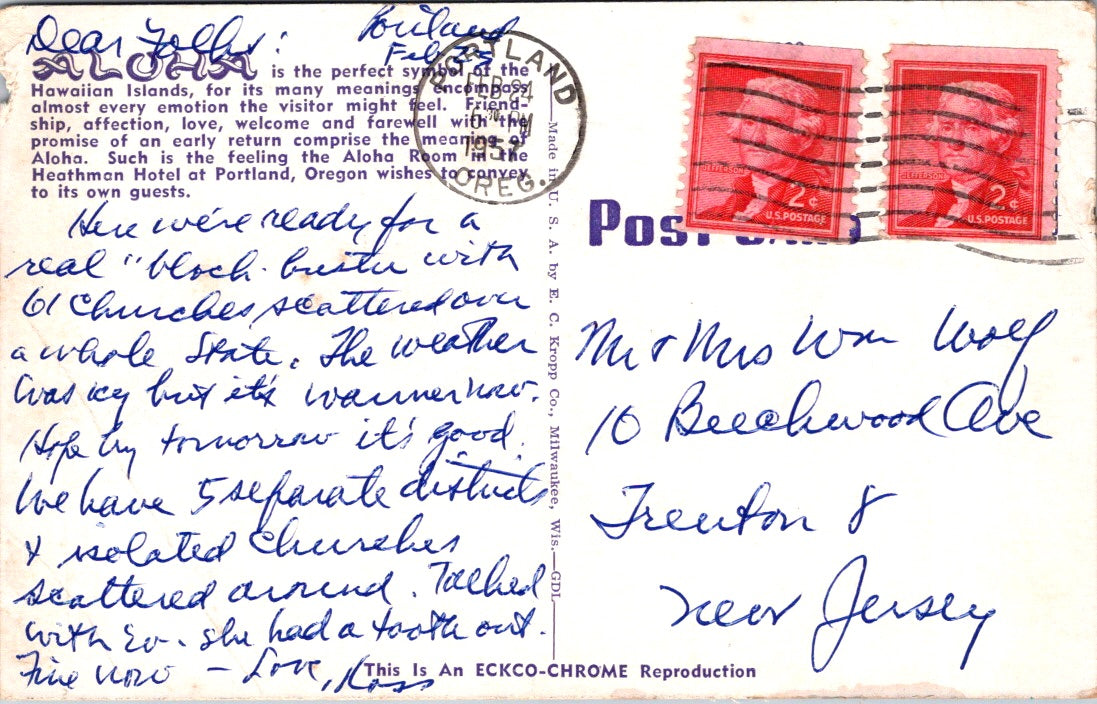 Dear Folks:
Portland
Feb 23
ALOHA is the perfect symbol of the
Hawaiian Islands, for its many meanings encompass
almost every emotion the visitor might feel. Friend-
ship, affection, love, welcome and farewell with the
promise of an early return comprise the meaning of
Aloha. Such is the feeling the Aloha Room in the
Heathman Hotel at Portland, Oregon wishes to convey
to its own guests.
Here we're ready for a
real "block-buster with
61 Churches scattered over
a whole State. The weather
was icy but it's warmer now.
Hope by tomorrow it's good.
We have 5 separate districts
& isolated Churches
scattered around. Talked
with Ev. She had a tooth out.
Fine now – Love, Ross
PORTLAND
FEB 24
PM
1957
OREG.
Made in U. S. A. by E. C. Kropp Co., Milwaukee, Wis.—GDL
JEFFERSON
2¢
U.S. POSTAGE
JEFFERSON
2¢
U.S. POSTAGE
POST CARD
Mr & Mrs Wm Wolf
10 Beechwood Ave
Trenton 8
New Jersey
This Is An ECKCO-CHROME Reproduction